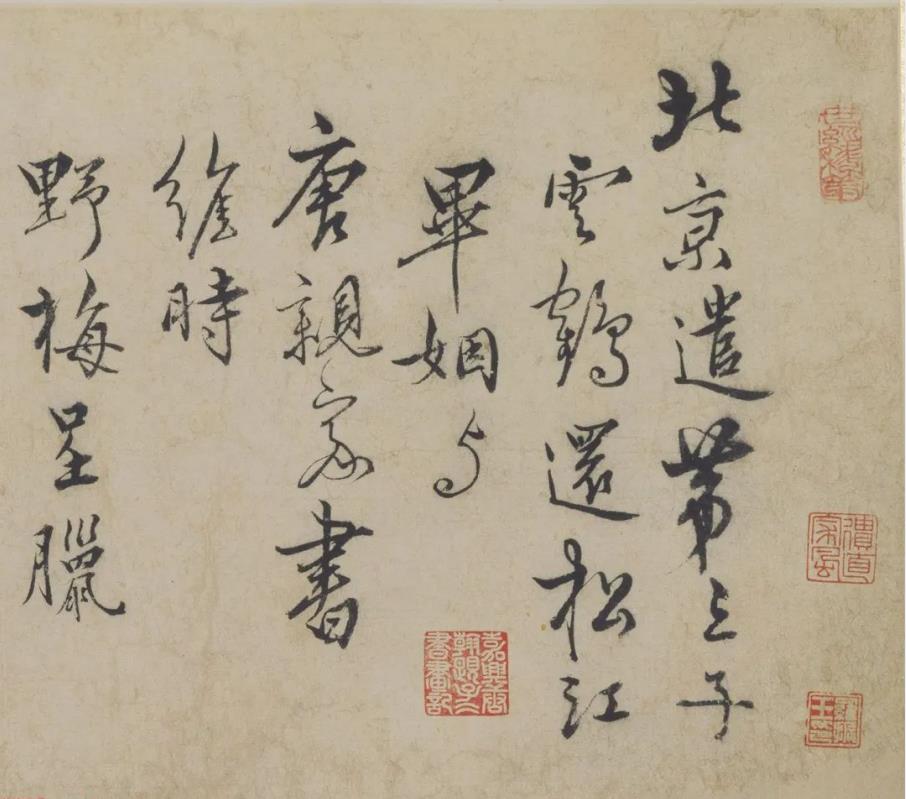 北京遣第三子
雲鶴還松江
畢姻与
唐親家書
維時
野梅呈臘